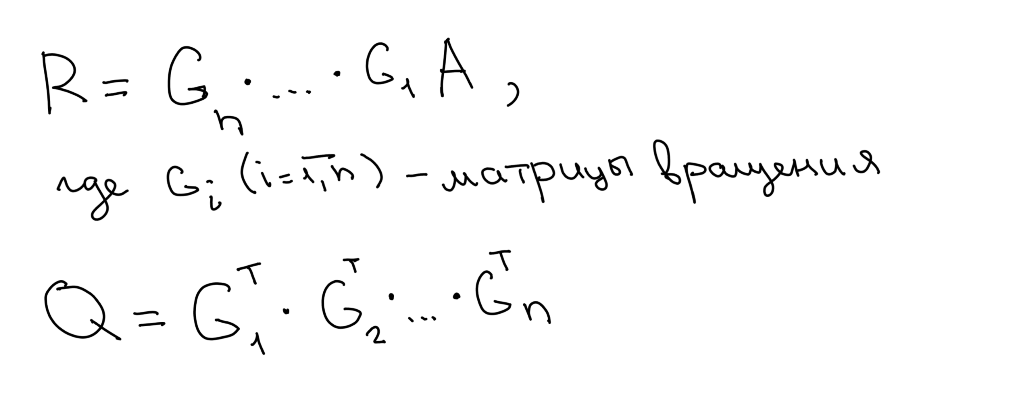 R = Gₙ · ... · G₁ A ,
где Gᵢ (i = 1̅,̅n̅) – матрицы вращения
Q = G₁ᵀ · G₂ᵀ · ... · Gₙᵀ